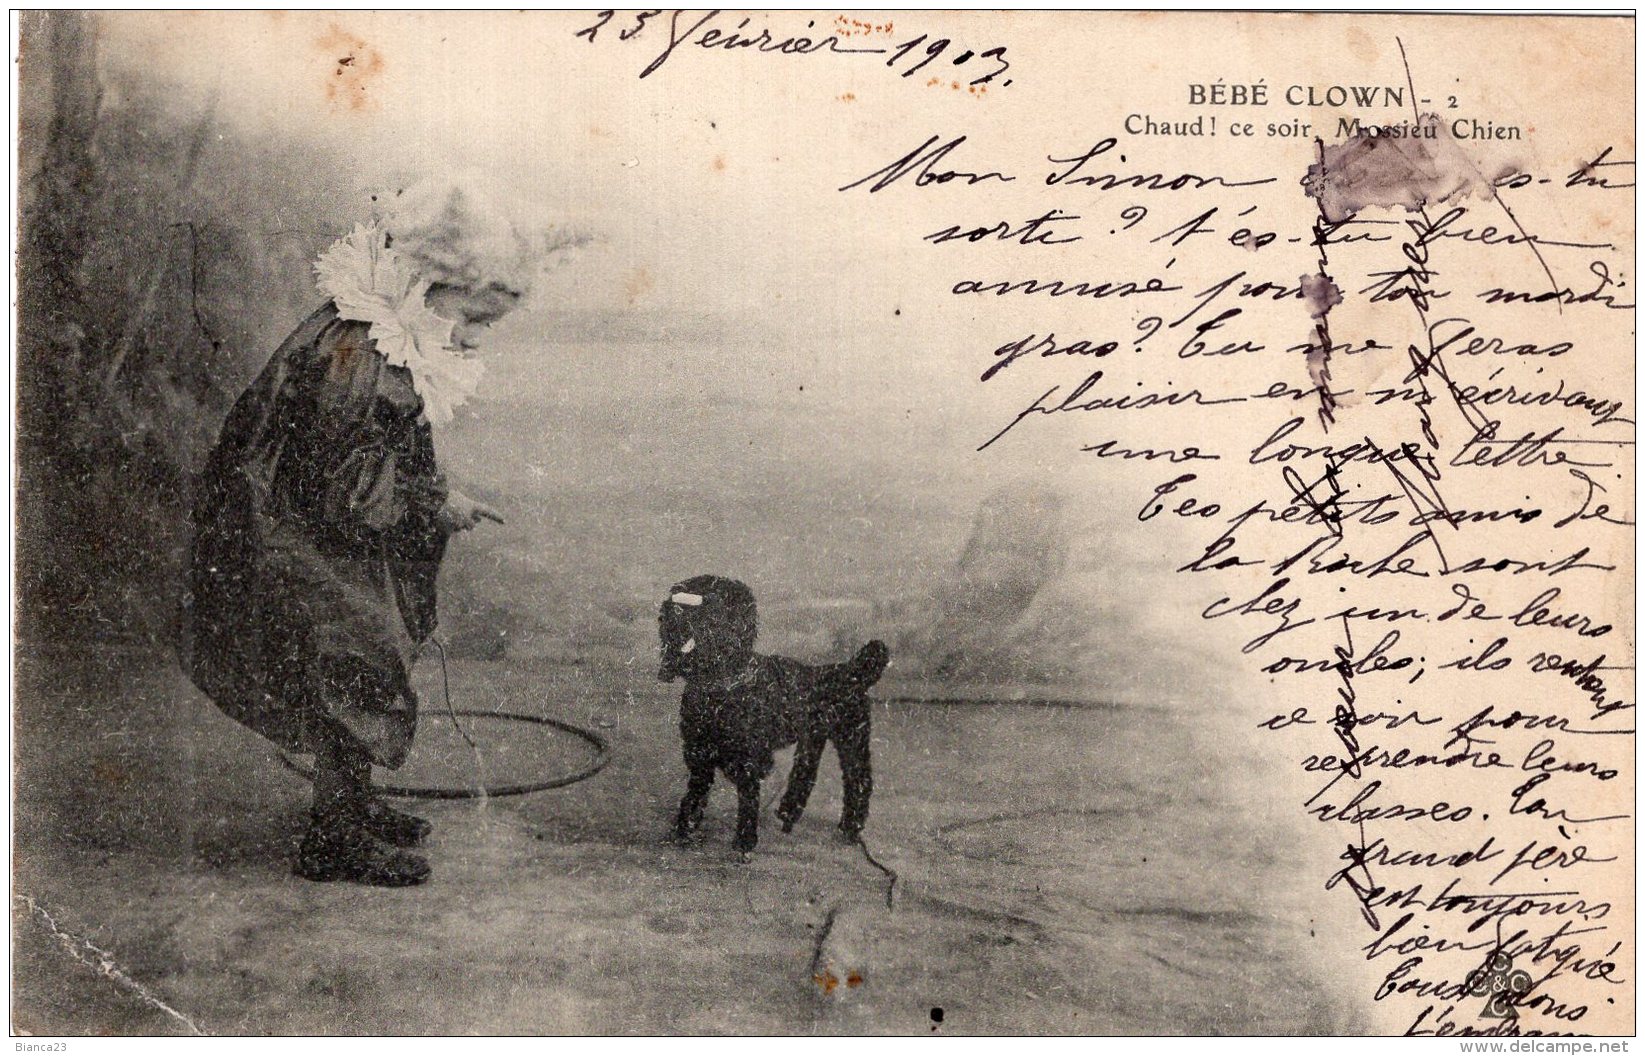 25 février 1903.
BÉBÉ CLOWN - 2
Chaud! ce soir, Mossieu Chien
Mon Simon es-tu
sorti? t'es-tu bien
amusé pour ton mardi
gras? Tu me feras
plaisir en m'écrivant
une longue lettre.
Tes petits amis de
la Roche sont
chez un de leurs
oncles; ils rentrent
ce soir pour
reprendre leurs
classes. Ton
grand père
est toujours
bien fatigué
Tous nous
t'embrass
C&C
Bianca23
www.delcampe.net